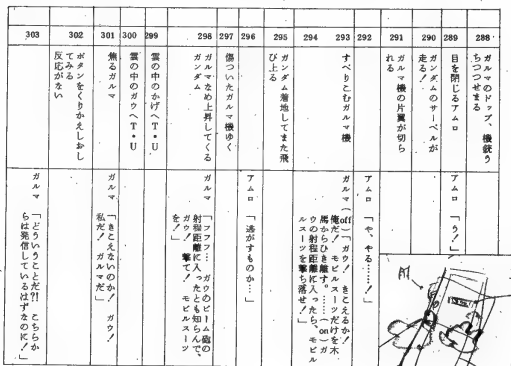 288
ガルマのドップ、機銃う
ちつつせまる
289
目を閉じるアムロ
アムロ 「う!」
290
ガンダムのサーベルが
走る!
291
ガルマ機の片翼が切ら
れる
292
アムロ 「や、やる……!」
293
すべりこむガルマ機
ガルマ(off)「ガウ! きこえるか!
俺だ! モビルスーツだけを木
馬からひき離す。……(on)ガ
ウの射程距離に入ったら、モビ
ルスーツを撃ち落せ!」
294
295
ガンダム着地してまた飛
び上る
296
アムロ 「逃がすものか…」
297
傷ついたガルマ機ゆく
298
ガルマなめ上昇してくる
ガンダム
ガルマ 「フフフ… ガウのビーム砲の
射程距離に入ったとも知らんで、
ガウ! 撃て! モビルスーツ
を!」
299
雲の中のかげへT・U
300
雲の中のガウへT・U
301
焦るガルマ
ガルマ 「きこえないのか! ガウ!
私だ! ガルマだ」
302
ボタンをくりかえしおし
てみる
反応がない
303
ガルマ 「どういうことだ?! こちらか
らは発信しているはずなのに!」